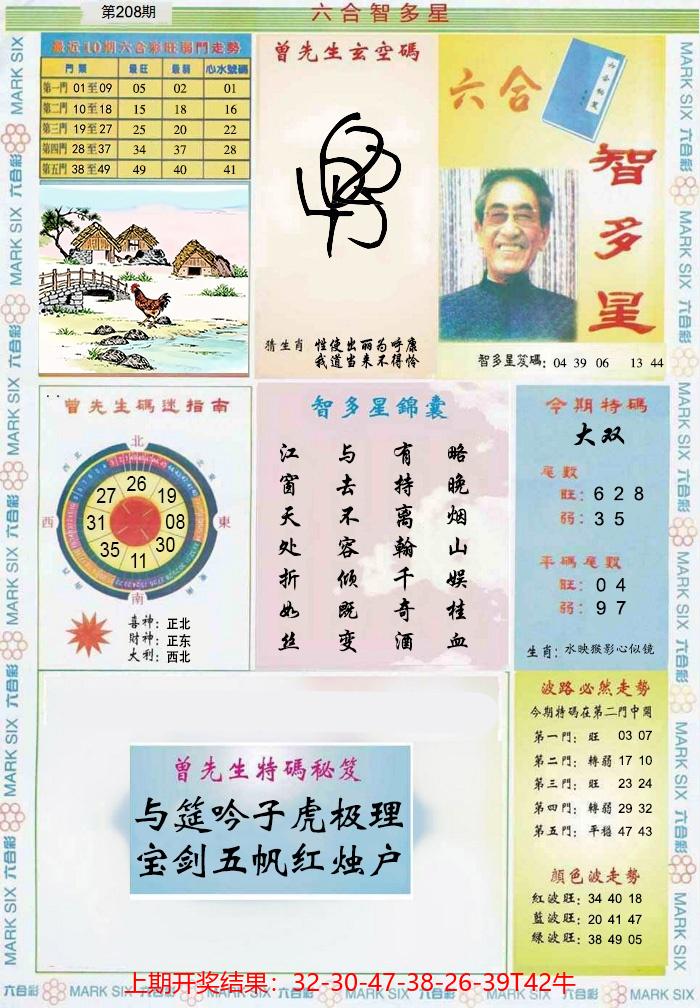 第208期
六合智多星
最近10期六合彩旺弱門走勢
門類 最旺 最弱 心水號碼
第一門 01至09 05 02 01
第二門 10至18 15 18 16
第三門 19至27 25 20 22
第四門 28至37 34 37 28
第五門 38至49 49 40 41
曾先生玄空碼
猜生肖 性使出丽为呼康
我道当来不得怜
六合
智多星
智多星笈碼: 04 39 06 13 44
曾先生碼迷指南
北
西 東
南
26
27 19
31 08
35 30
11
喜神: 正北
財神: 正东
大利: 西北
智多星錦囊
江 与 有 略
窗 去 持 晚
天 不 离 烟
处 容 翰 山
折 倾 千 娱
如 既 奇 桂
丝 变 酒 血
今期特碼
大双
尾數
旺: 6 2 8
弱: 3 5
平碼尾數
旺: 0 4
弱: 9 7
生肖: 水映猴影心似镜
曾先生特碼秘笈
与筵吟子虎极理
宝剑五帆红烛户
波路必然走勢
今期特碼在第二門中開
第一門: 旺 03 07
第二門: 轉弱 17 10
第三門: 旺 23 24
第四門: 轉弱 29 32
第五門: 平穩 47 43
顏色波走勢
紅波旺: 34 40 18
藍波旺: 20 41 47
綠波旺: 38 49 05
上期开奖结果：32-30-47-38-26-39T42牛
六合彩 MARK SIX 六合彩 MARK SIX 六合彩 MARK SIX 六合彩 MARK SIX 六合彩